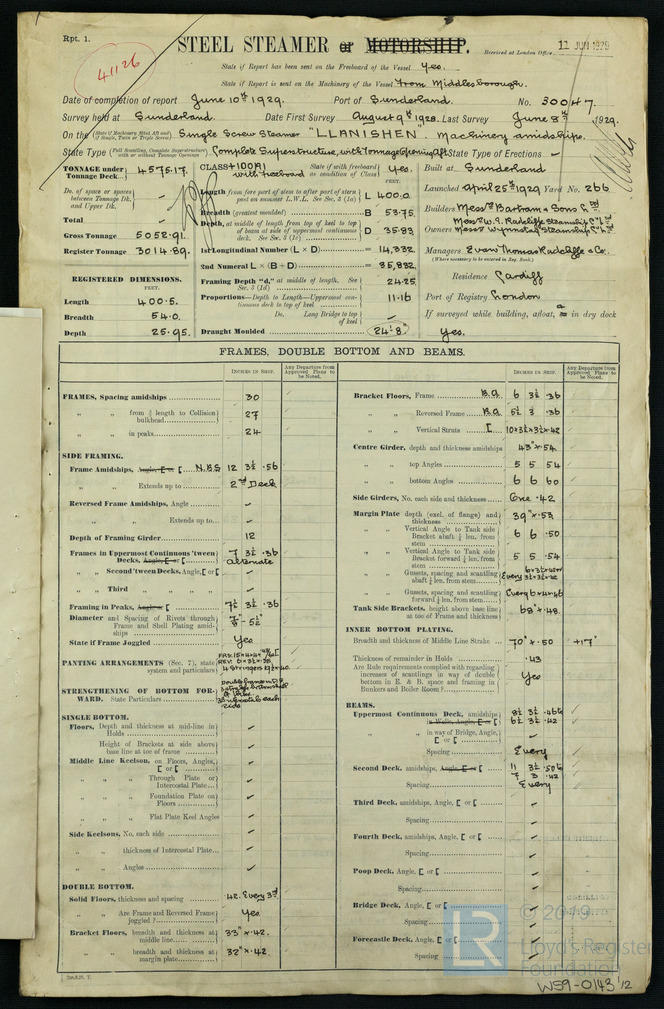 Rpt. 1.
41126
STEEL STEAMER or MOTORSHIP.
Received at London Office 11 JUN 1929
State if Report has been sent on the Freeboard of the Vessel Yes.
State if Report is sent on the Machinery of the Vessel From Middlesborough.
Date of completion of report June 10th 1929. Port of Sunderland. No. 30047.
Survey held at Sunderland. Date First Survey August 9th 1928. Last Survey June 8th 1929.
On the Single Screw Steamer "LLANISHEN. Machinery amidships.
State Type Complete Superstructure, with Tonnage Opening Aft State Type of Erections –
TONNAGE under Tonnage Deck 4575.17.
Do. of space or spaces between Tonnage Dk. and Upper Dk. –
Total –
Gross Tonnage 5052.91.
Register Tonnage 3014.89.
REGISTERED DIMENSIONS.
FEET.
Length 400.5.
Breadth 54.0.
Depth 25.95.
CLASS +100A1 with freeboard
State if with freeboard as condition of Class Yes.
FEET.
Length from fore part of stem to after part of stern post on summer L.W.L. See Sec. 3 (1a) L 400.0
Breadth (greatest moulded) B 53.75.
Depth, at middle of length from top of keel to top of beam at side of uppermost continuous deck. See Sec. 3 (1c) D 35.83
1st Longitudinal Number (L × D) = 14,332.
2nd Numeral L × (B + D) = 35,832.
Framing Depth "d," at middle of length. See Sec. 3 (1d) 24.25
Proportions—Depth to Length—Uppermost continuous deck to top of keel 11.16
Do. Long Bridge to top of keel –
Draught Moulded 24'8"
Built at Sunderland
Launched April 25th 1929 Yard No. 266
Builders Messrs Bartram & Sons Ld
Owners Messrs W.I. Radcliffe Steamship Co Ld
Messrs Wynnstay Steamship Co Ld
Managers Evan Thomas Radcliffe & Co.
(Where necessary to be entered in Reg. Book.)
Residence Cardiff
Port of Registry London
If surveyed while building, afloat, or in dry dock
Yes.
FRAMES, DOUBLE BOTTOM AND BEAMS.
INCHES IN SHIP.
Any Departure from Approved Plans to be Noted.
INCHES IN SHIP.
Any Departure from Approved Plans to be Noted.
FRAMES, Spacing amidships 30
" " from ⅗ length to Collision bulkhead 27
" " in peaks 24
SIDE FRAMING.
Frame Amidships, Angle, [ or [ N.B.S 12 3½ .56
" " Extends up to 2nd Deck
Reversed Frame Amidships, Angle –
" " Extends up to –
Depth of Framing Girder 12
Frames in Uppermost Continuous 'tween Decks, Angle, [ or [ 7 3½ .36 alternate
" Second 'tween Decks, Angle, [ or [ –
" Third " " " " –
Framing in Peaks, Angle or [ 7½ 3½ .36
Diameter and Spacing of Rivets through Frame and Shell Plating amidships ⅞" - 5½"
State if Frame Joggled Yes
PANTING ARRANGEMENTS (Sec. 7), state system and particulars
STRENGTHENING OF BOTTOM FORWARD. State Particulars
SINGLE BOTTOM.
Floors, Depth and thickness at mid-line in Holds –
Height of Brackets at side above base line at toe of frame –
Middle Line Keelson, on Floors, Angles, [ or [ –
" " " Through Plate or Intercostal Plate –
" " " Foundation Plate on Floors –
" " " Flat Plate Keel Angles –
Side Keelsons, No. each side –
" " thickness of Intercostal Plate –
" " Angles –
DOUBLE BOTTOM.
Solid Floors, thickness and spacing .42. Every 3rd
" " Are Frame and Reversed Frame joggled ? Yes
Bracket Floors, breadth and thickness at middle line 33" x .42.
" " breadth and thickness at margin plate 32" x .42.
Bracket Floors, Frame B.A. 6 3½ .36
" " Reversed Frame B.A. 5½ 3 .36
" " Vertical Struts [ 10×3½×3½×.42
Centre Girder, depth and thickness amidships 43" x .54.
" " top Angles 5 5 .54
" " bottom Angles 6 6 .60
Side Girders, No. each side and thickness One .42
Margin Plate depth (excl. of flange) and thickness 39" x .53
" " Vertical Angle to Tank side Bracket abaft ¼ len. from stem 6 6 .50
" " Vertical Angle to Tank side Bracket forward ¼ len. from stem 5 5 .54
" " Gussets, spacing and scantling abaft ¼ len. from stem
" " Gussets, spacing and scantling forward ¼ len. from stem Every 6 x 4 x .46
Tank Side Brackets, height above base line at toe of Frame and thickness 68" x .48
INNER BOTTOM PLATING.
Breadth and thickness of Middle Line Strake 70" x .50 +17"
Thickness of remainder in Holds .43
Are Rule requirements complied with regarding increases of scantlings in way of double bottom in E. & B. space and framing in Bunkers and Boiler Room? Yes
BEAMS.
Uppermost Continuous Deck, amidships 8½ 3½ .46 6½ 3½ .42
" " in way of Bridge, Angle, [ or [ –
Spacing Every
Second Deck, amidships, Angle, [ or [ 11 3½ .50 7 3 .42
Spacing Every
Third Deck, amidships, Angle, [ or [ –
Spacing –
Fourth Deck, amidships, Angle, [ or [ –
Spacing –
Poop Deck, Angle, [ or [ –
Spacing –
Bridge Deck, Angle, [ or [ –
Spacing –
Forecastle Deck, Angle, [ or [ –
Spacing –
LR
© 2019
Lloyd's Register
Foundation
W59-0143 1/2